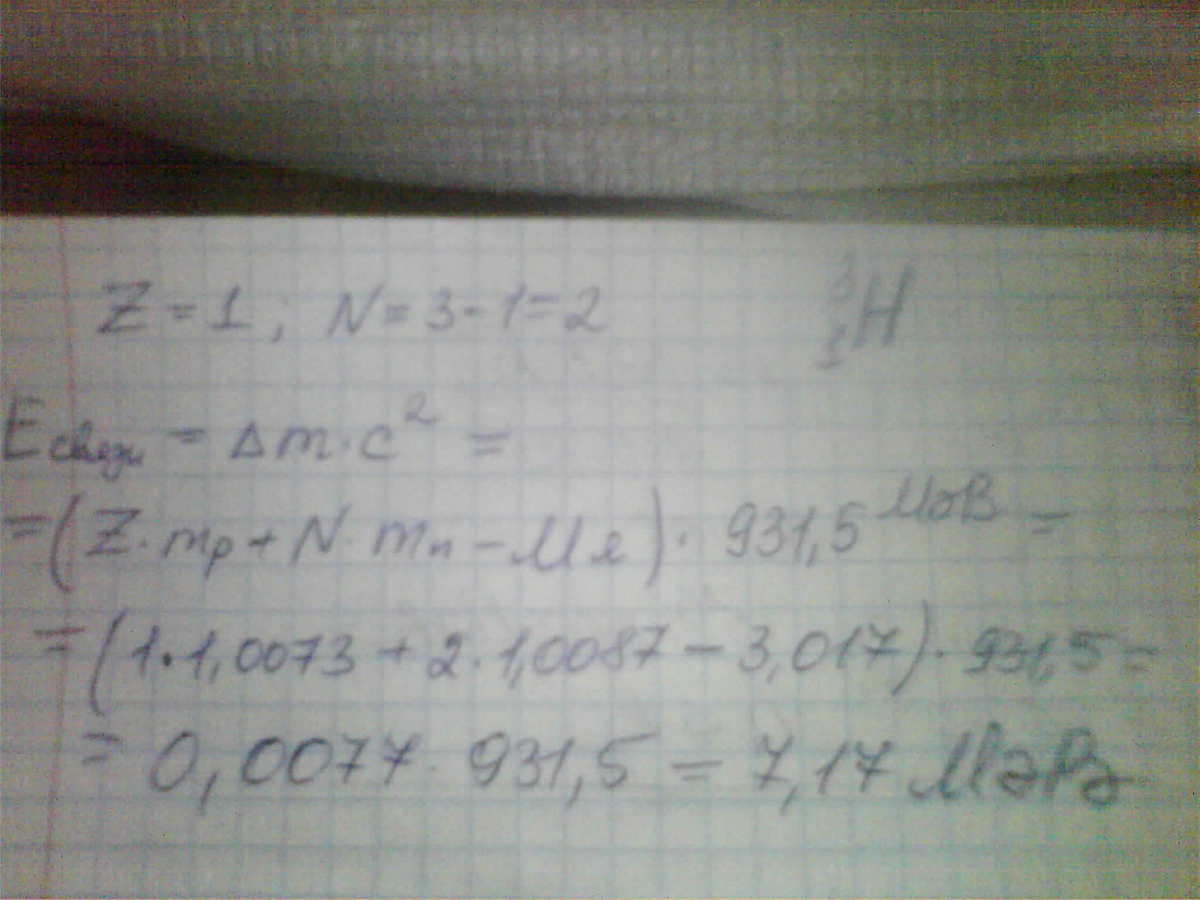 Z = 1; N = 3 - 1 = 2   ³₁H
Eсвязи = Δm·c² =
= (Z·mp + N·mn - Mя)· 931,5 МэВ =
= (1·1,0073 + 2·1,0087 - 3,017)· 931,5 =
= 0,0077· 931,5 = 7,17 МэВ